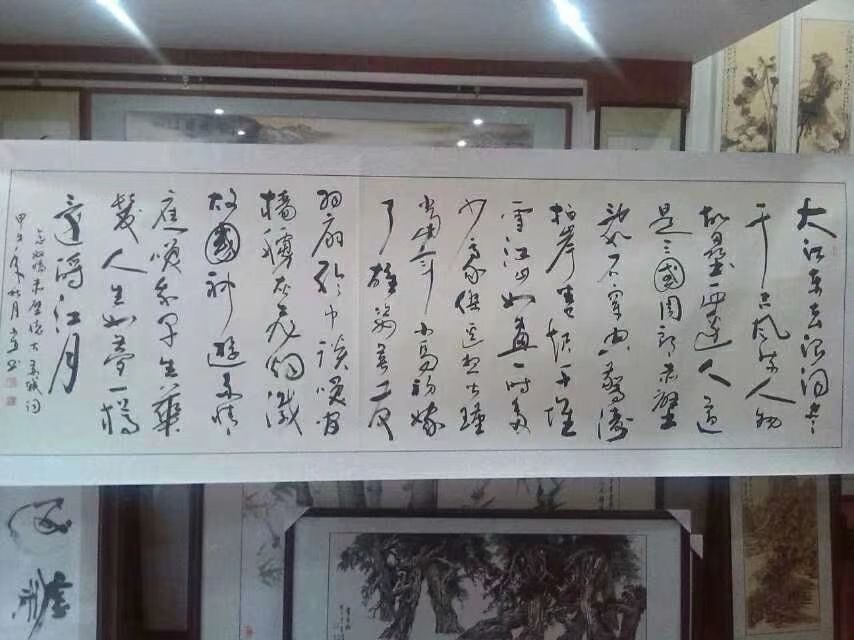 大江东去浪淘尽
千古風流人物
故壘西邊人道
是三國周郎赤壁
乱石穿空驚涛
拍岸卷起千堆
雪江山如畫一时多
少豪傑遥想公瑾
当年小乔初嫁
了雄姿英发
羽扇纶巾谈笑间
樯橹灰飞烟灭
故國神遊多情
應笑我早生華
髮人生如夢一樽
還酹江月
念奴娇赤壁怀古苏轼词
甲午年秋月书